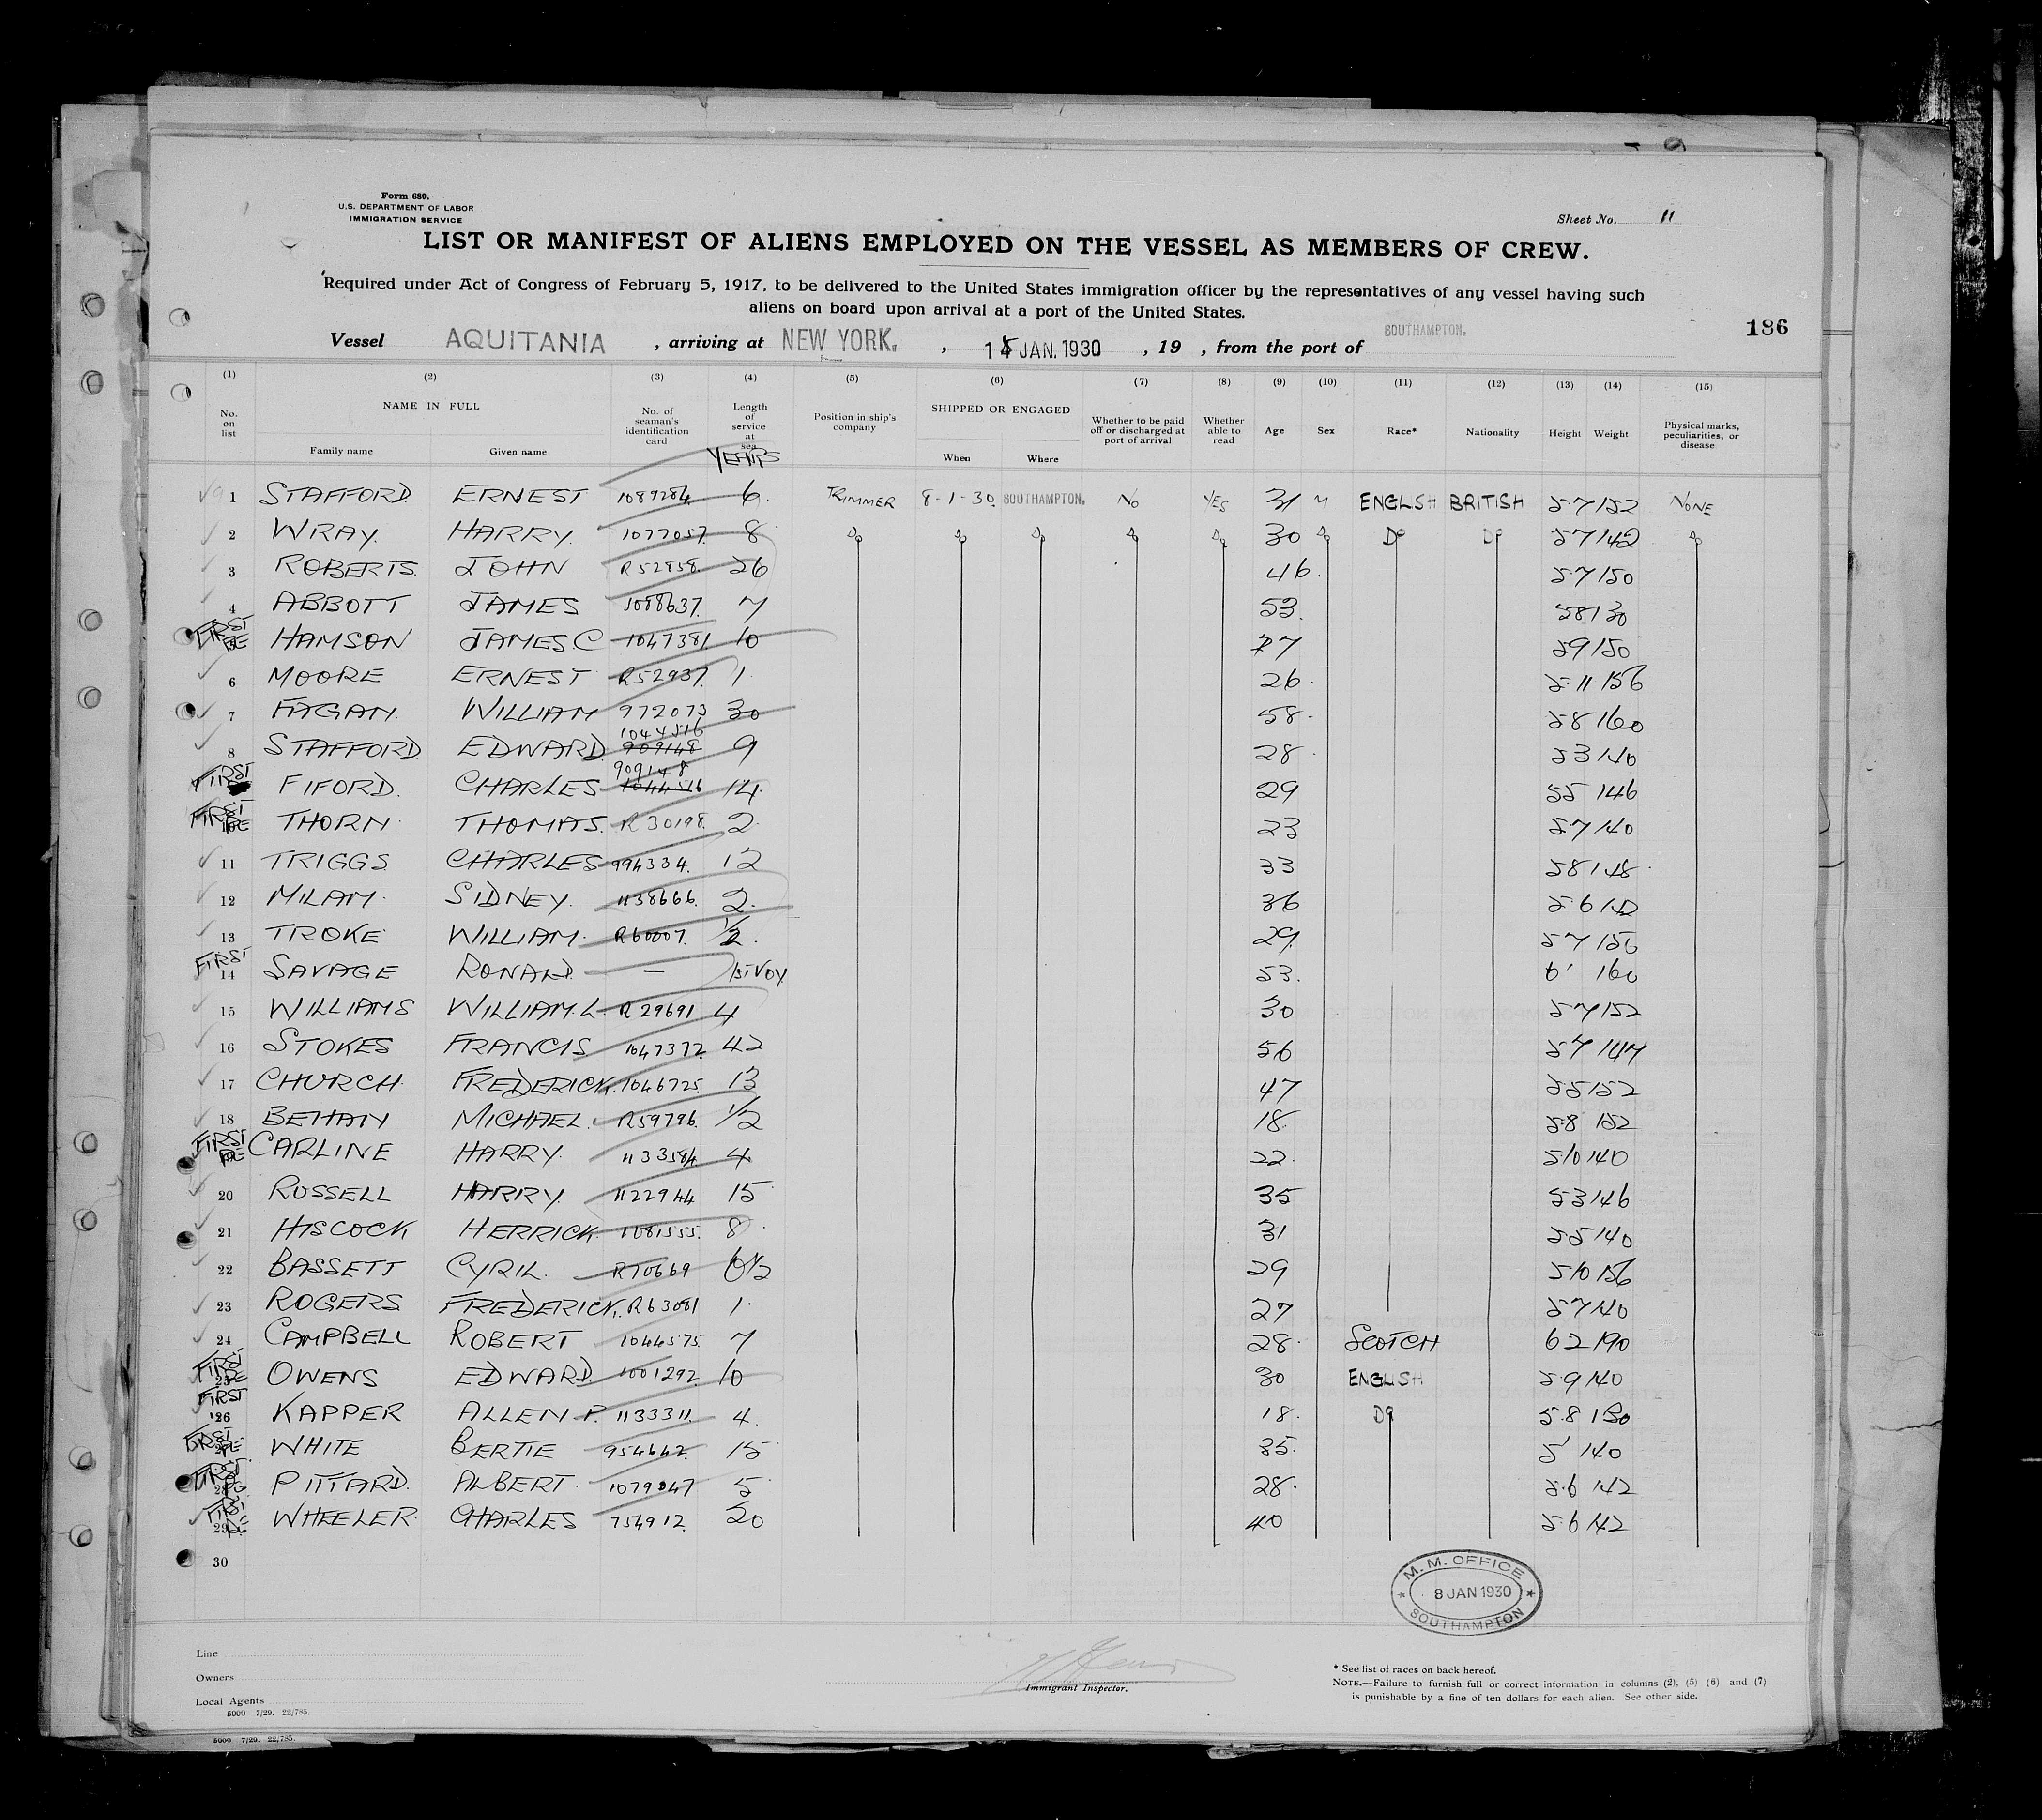 Form 680.
U.S. DEPARTMENT OF LABOR
IMMIGRATION SERVICE
Sheet No. 11
LIST OR MANIFEST OF ALIENS EMPLOYED ON THE VESSEL AS MEMBERS OF CREW.
Required under Act of Congress of February 5, 1917, to be delivered to the United States immigration officer by the representatives of any vessel having such
aliens on board upon arrival at a port of the United States.
186
Vessel AQUITANIA , arriving at NEW YORK. , 15 JAN. 1930 , 19 , from the port of SOUTHAMPTON.
(1) (2) (3) (4) (5) (6) (7) (8) (9) (10) (11) (12) (13) (14) (15)
No. on list NAME IN FULL Family name Given name No. of seaman's identification card Length of service at sea YEARS Position in ship's company SHIPPED OR ENGAGED When Where Whether to be paid off or discharged at port of arrival Whether able to read Age Sex Race* Nationality Height Weight Physical marks, peculiarities, or disease
1 STAFFORD ERNEST 1089284 6. TRIMMER 8-1-30 SOUTHAMPTON. No YES 31 M ENGLSH BRITISH 5·7 152 NONE
2 WRAY. HARRY. 1077057. 8 Do Do Do Do Do 30 Do Do Do 57 142 Do
3 ROBERTS. JOHN R52858. 26 46. 5·7 150
4 ABBOTT JAMES 1088637. 7 53. 58 130
FIRST HAMSON JAMES C 1047381. 10 27 59 150
6 MOORE ERNEST R52937. 1 26. 5·11 156
7 FAGAN. WILLIAM 972073 30 58. 58 160
8 STAFFORD. EDWARD. 1044516 909148 9 28. 53 140
FIRST FIFORD. CHARLES 909148 1044516 14. 29 55 146
FIRST THORN THOMAS. R30198. 2. 23 57 140
11 TRIGGS CHARLES 994334. 12 33 58 148
12 MILAM. SIDNEY. 1138666. 2. 36 5·6 142
13 TROKE WILLIAM. R60007. 1/2. 29. 57 150
FIRST 14 SAVAGE RONALD. — 1ST VOY 53. 6' 160
15 WILLIAMS WILLIAM. L. R29691 4 30 57 152
16 STOKES FRANCIS. 1047372 42 56 57 147
17 CHURCH. FREDERICK. 1046725. 13 47 55 152
18 BEHAN MICHAEL. R59796. 1/2 18. 5·8 152
FIRST CARLINE HARRY. 1133584 4 22. 5/10 140
20 RUSSELL HARRY. 1122944 15 35 53 146
21 HISCOCK HERRICK. 1081555. 8 31 55 140
22 BASSETT CYRIL. R70669 6 1/2 29 5/10 156
23 ROGERS FREDERICK. R63081 1. 27 57 140
24 CAMPBELL ROBERT 1044575. 7 28. SCOTCH 62 190
FIRST 25 OWENS EDWARD. 1001292. 10 30 ENGLISH 5·9 140
FIRST 26 KAPPER ALLEN P. 1133311. 4. 18. Do 5·8 130
FIRST WHITE BERTIE 954642. 15 35. 5' 140
FIRST 28 PITTARD. ALBERT. 1079047 5 28. 5·6 142
FIRST 29 WHEELER. CHARLES 754912. 20 40 5·6 142
30
M. M. OFFICE
8 JAN 1930
SOUTHAMPTON
Line
Owners
Local Agents
5000 7/29. 22/785.
Immigrant Inspector.
* See list of races on back hereof.
NOTE.—Failure to furnish full or correct information in columns (2), (5) (6) and (7)
is punishable by a fine of ten dollars for each alien. See other side.
5000 7/29. 22,785.